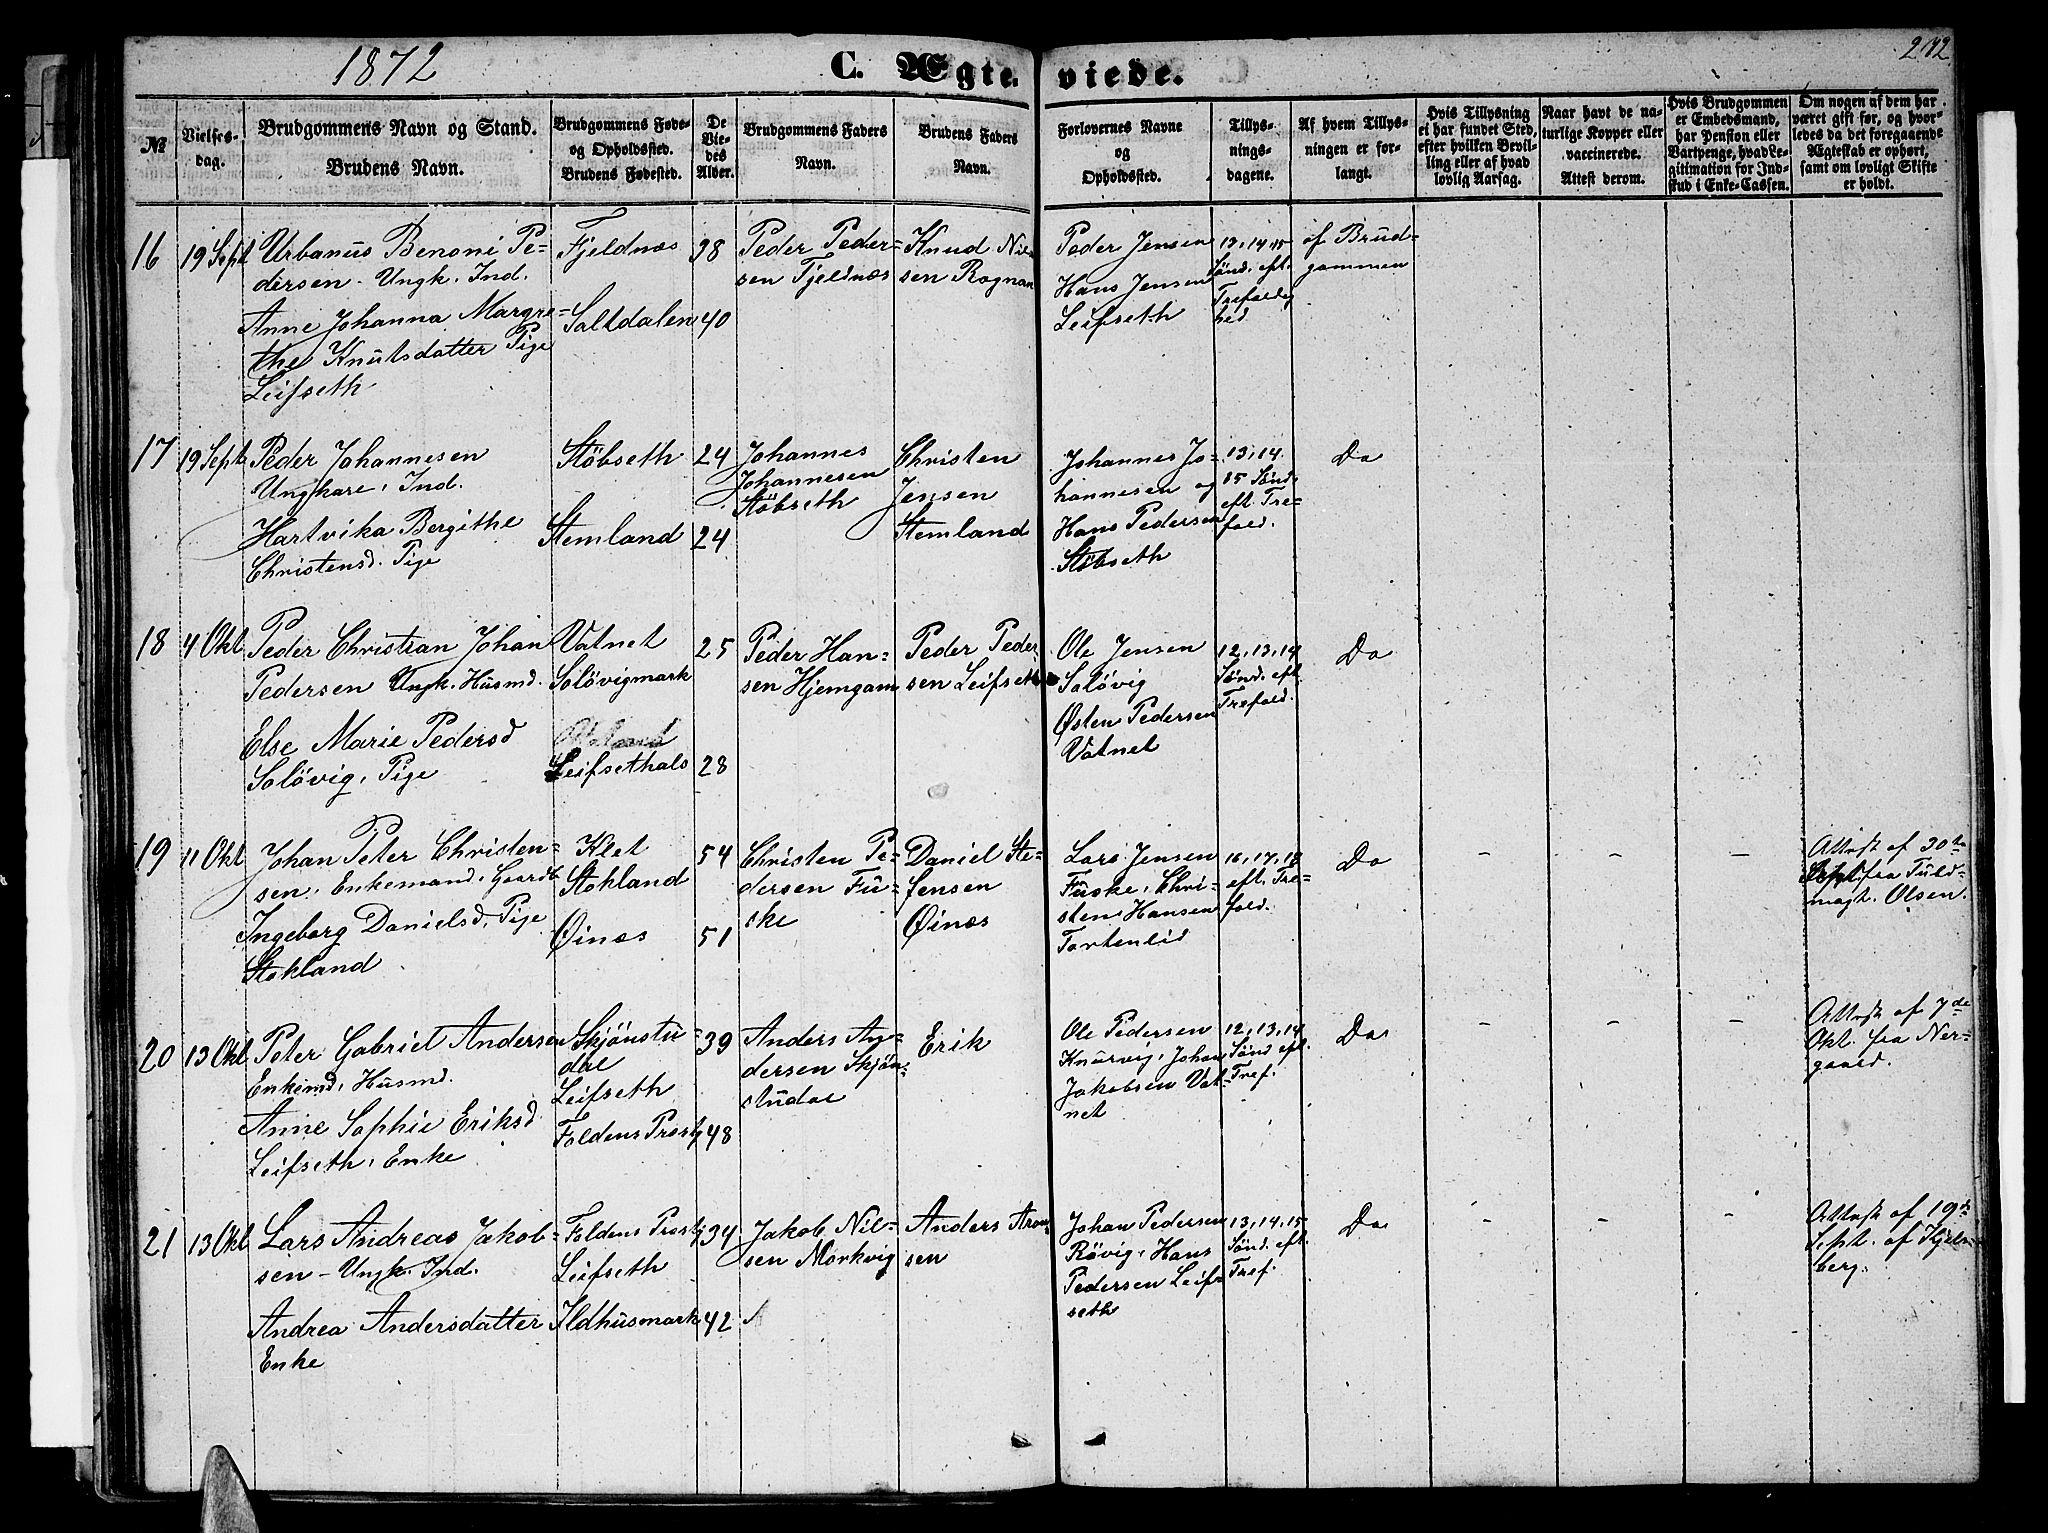 1872
C. Ægteviede.
№
Vielses-
dag.
Brudgommens Navn og Stand.
Brudens Navn.
Brudgommens Føde-
og Opholdssted.
Brudens Fødested.
De
Vie-
des
Alder.
Brudgommens Faders
Navn.
Brudens Faders
Navn.
Forlovernes Navne
og
Opholdssted.
Tillys-
nings-
dagene.
Af hvem Tillys-
ningen er for-
langt.
Hvis Tillysning
ei har fundet Sted,
efter hvilken Bevil-
ling eller af hvad
lovlig Aarsag.
Naar havt de na-
turlige Kopper eller
vaccinerede.
Attest derom.
Hvis Brudgommen
er Embedsmand,
har Pension eller
Vartpenge, hvad Le-
gitimation for Ind-
skud i Enke-Cassen.
Om nogen af dem har
været gift før, og hvor-
ledes da det foregaaende
Ægteskab er ophørt,
samt om lovligt Skifte
er holdt.
16
19 Sept
Urbanus Benoni Pe-
dersen - Ungk. Ind.
Anne Johanna Margre-
the Knutsdatter Pige
Leifseth
Fjeldnæs
Saltdalen
38
40
Peder Peder-
sen Fjeldnæs
Knud Nil-
sen Rognan
Peder Jensen
Hans Jensen
Leifseth
13, 14, 15
Sønd. eft.
Trefoldig
hed
af Brud-
gommen
17
19 Sept
Peder Johannesen
Ungkare, Ind.
Hartvika Bergithe
Christensd. Pige
Støbseth
Stemland
24
24
Johannes
Johannesen
Støbseth
Christen
Jensen
Stemland
Johannes Jo-
hannesen og
Hans Pedersen
Støbseth
13, 14.
15 Sønd.
eft. Tre-
fold.
Do
18
4 Okt
Peder Christian Johan
Pedersen Ungk. Husmd.
Else Marie Pedersd
Soløvig, Pige
Vatnet
Soløvigmark
Leifsethals
25
28
Peder Han-
sen Hjemgam
Peder Peder
sen Leifseth
Ole Jensen
Soløvig
Østen Pedersen
Vatnet
12, 13, 14
Sønd. eft.
Trefold.
Do
19
11 Okt
Johan Peter Christen-
sen, Enkemand, Gaardb
Ingeborg Danielsd, Pige
Stokland
Klet
Stokland
Øinæs
54
51
Christen Pe-
dersen Fu-
ske
Daniel Ste-
fensen
Øinæs
Lars Jensen
Fuske, Chri-
sten Hansen
Tortenlid
16, 17, 18
eft. Tre-
fold.
Do
Attest af 30te
Sept. fra Fuld-
mægt. Olsen.
20
13 Okt
Peter Gabriel Andersen
Enkemd, Husmd.
Anne Sophie Eriksd
Leifseth, Enke
Skjønstu-
dal
Leifseth
Foldens Præstg
39
48
Anders An-
dersen Skjøn-
studal
Erik
Ole Pedersen
Knurvig, Johan
Jakobsen Vat-
net
12, 13, 14
Sønd eft.
Tref.
Do
Attest af 7de
Okt. fra Ner-
gaard.
21
13 Okt
Lars Andreas Jakob-
sen - Ungk. Ind.
Andrea Andersdatter
Enke
Foldens Præstg
Leifseth
Ildhusmark
34
42
Jakob Nil-
sen Mørkvig
Anders Aron-
sen
Johan Pedersen
Røvig, Hans
Pedersen Leif-
seth
13, 14, 15
Sønd. eft.
Tref.
Do
Attest af 19de
Sept. af Kjels-
berg.